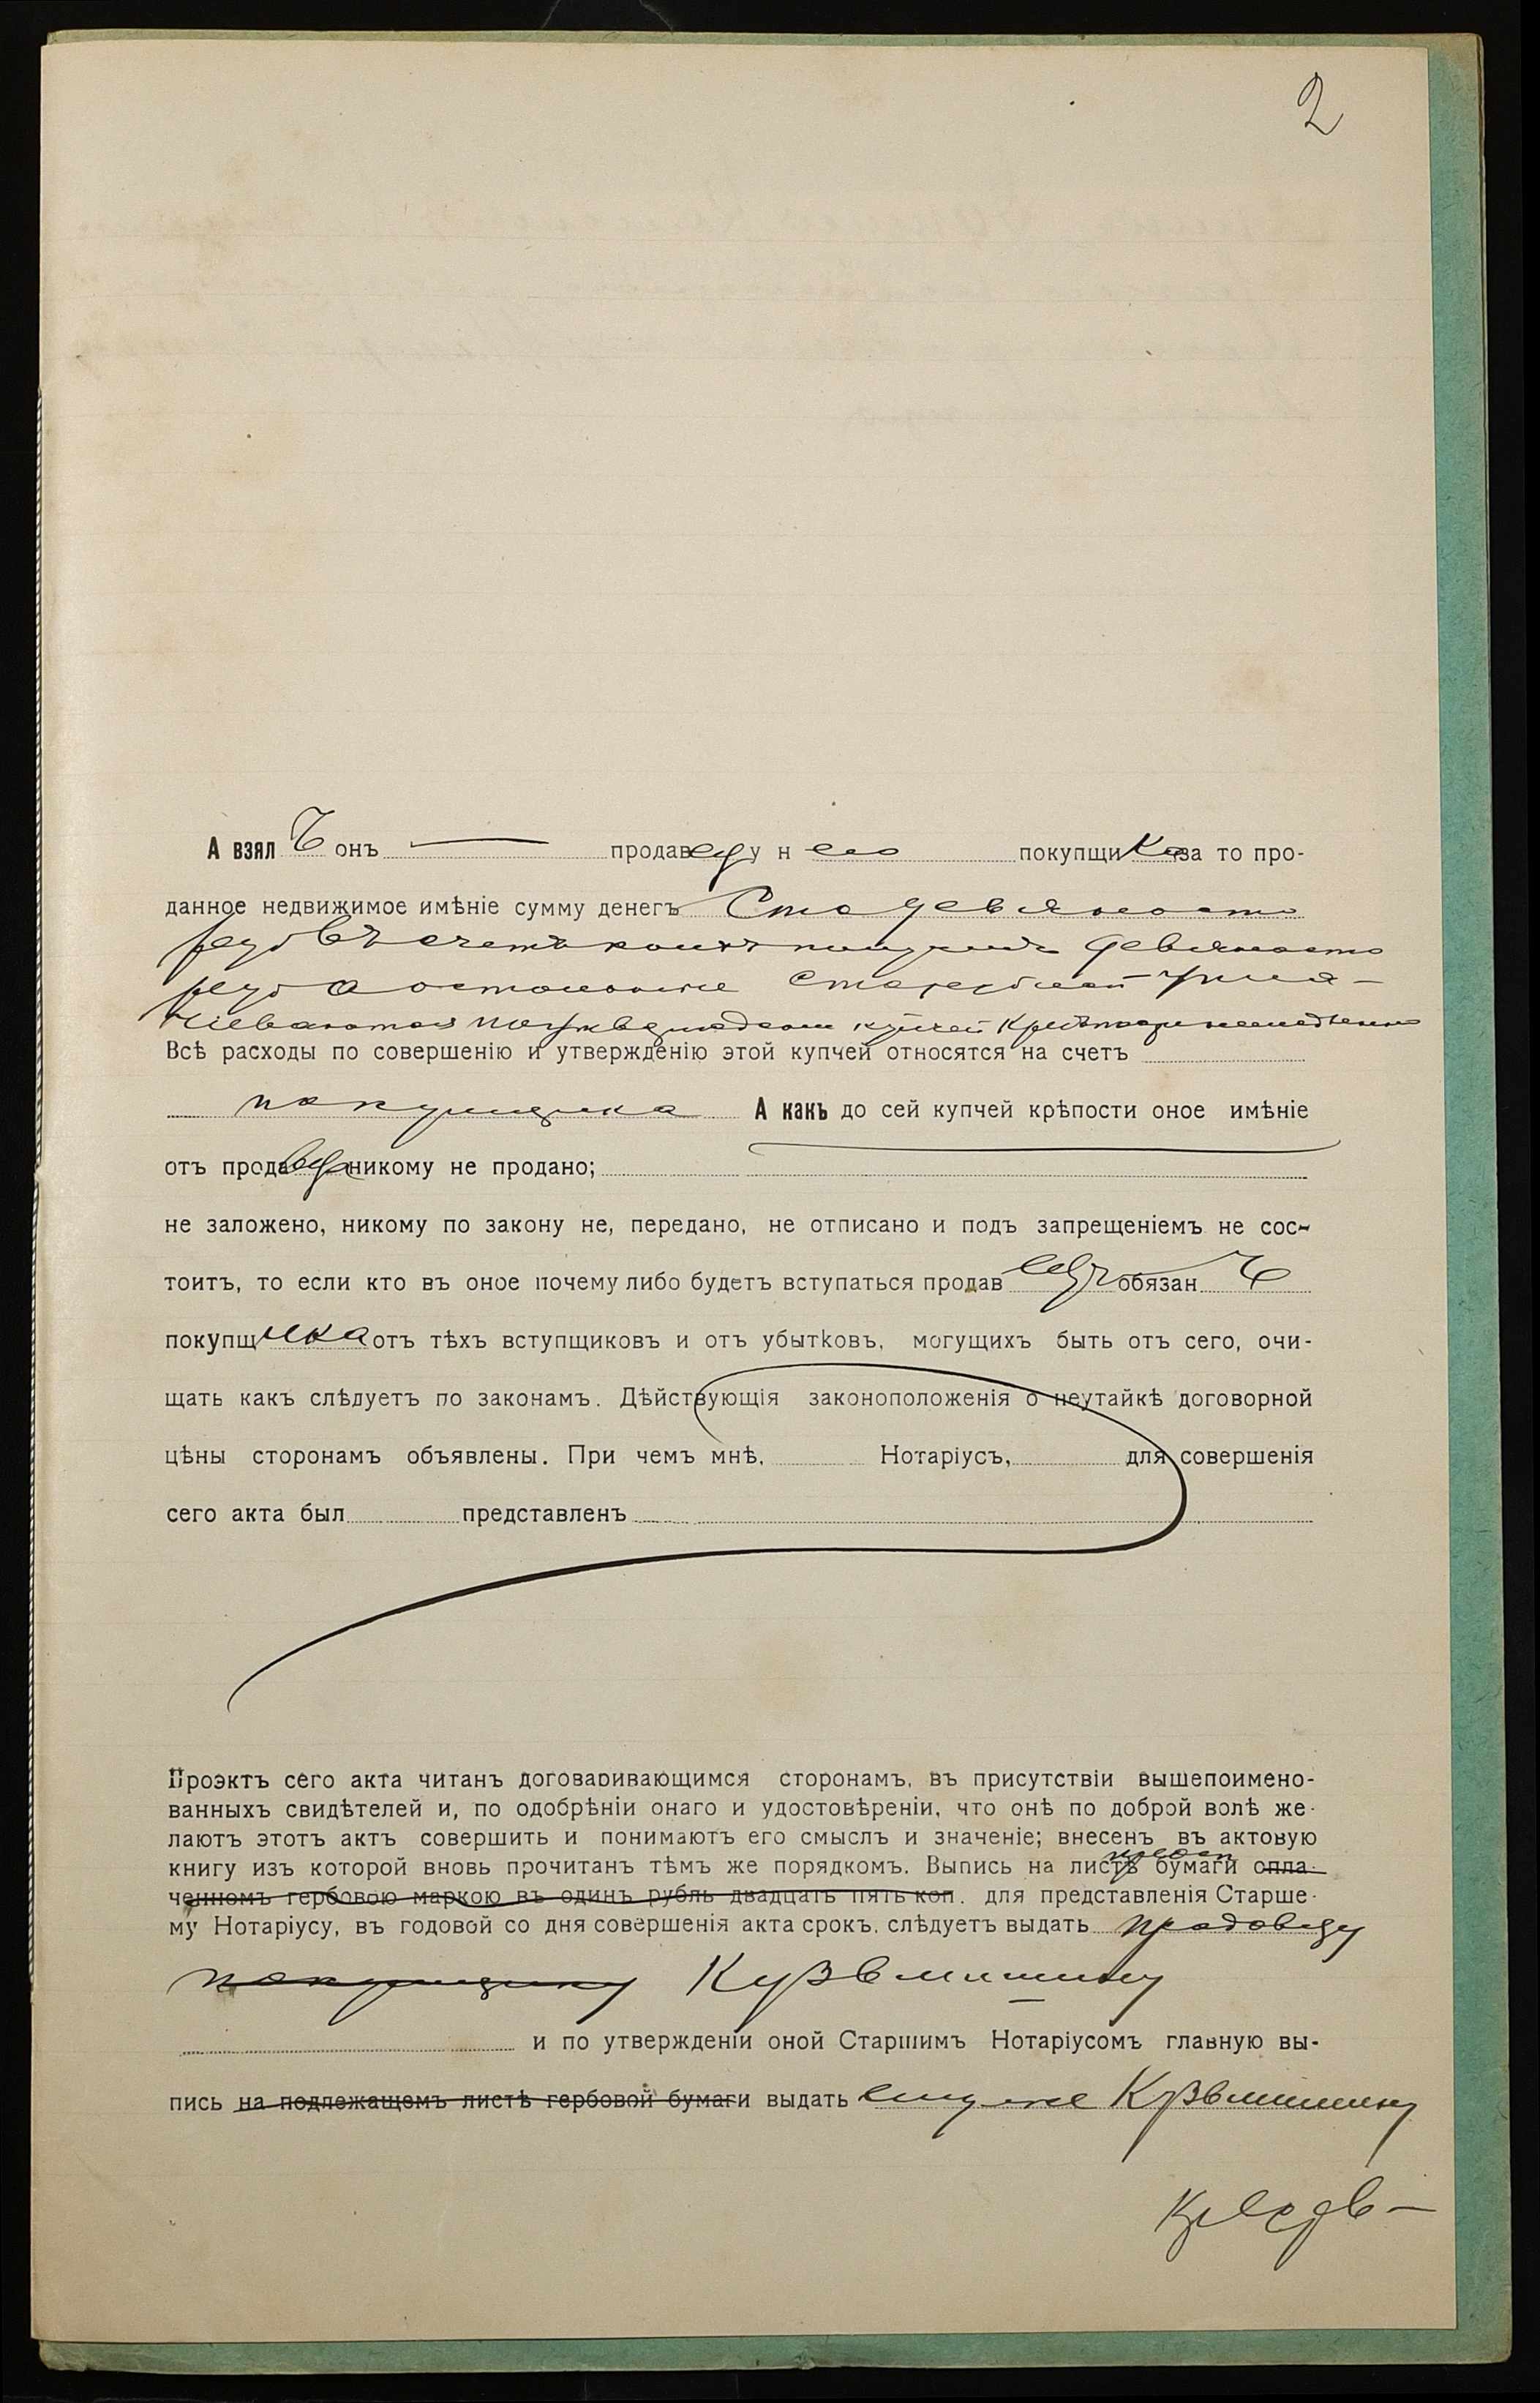 2
А взялъ онъ — продавецъ у него покупщика за то про-
данное недвижимое имѣніе сумму денегъ Сто девяносто
руб въ счетъ коихъ получилъ девяносто
руб а остальные сто рублей
купчей крѣпости
Всѣ расходы по совершенію и утвержденію этой купчей относятся на счетъ
покупщика А какъ до сей купчей крѣпости оное имѣніе
отъ продавца никому не продано;
не заложено, никому по закону не, передано, не отписано и подъ запрещеніемъ не сос-
тоитъ, то если кто въ оное почему либо будетъ вступаться продавецъ обязанъ
покупщика отъ тѣхъ вступщиковъ и отъ убытковъ, могущихъ быть отъ сего, очи-
щать какъ слѣдуетъ по законамъ. Дѣйствующія законоположенія о неутайкѣ договорной
цѣны сторонамъ объявлены. При чемъ мнѣ, Нотаріусъ, для совершенія
сего акта был представленъ
Проэктъ сего акта читанъ договаривающимся сторонамъ, въ присутствіи вышепоимено-
ванныхъ свидѣтелей и, по одобрѣніи онаго и удостовѣреніи, что онѣ по доброй волѣ же-
лаютъ этотъ актъ совершить и понимаютъ его смыслъ и значеніе; внесенъ въ актовую
книгу изъ которой вновь прочитанъ тѣмъ же порядкомъ. Выпись на листѣ бумаги опла-
ченномъ гербовою маркою въ одинъ рубль двадцать пять коп. для представленія Старше-
му Нотаріусу, въ годовой со дня совершенія акта срокъ, слѣдуетъ выдать продавцу
покупщику Кузьмишину
и по утвержденіи оной Старшимъ Нотаріусомъ главную вы-
пись на подлежащемъ листѣ гербовой бумаги выдать ему же Кузьмишину